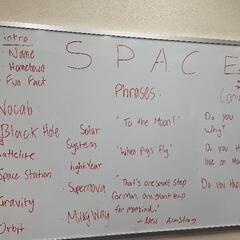 intro
- Name
- Hometown
- Fun Fact
SPACE
Vocab:
Black Hole
Satellite
Space Station
Gravity
Orbit
Solar
System
light-Year
Supernova
Milky Way
Phrases:
"To the Moon!"
"When Pigs fly"
"That's one small step
for man, one giant leap
for mankind."
- Neil Armstrong
Do you
Why?
Do you th
live on M
Do you th